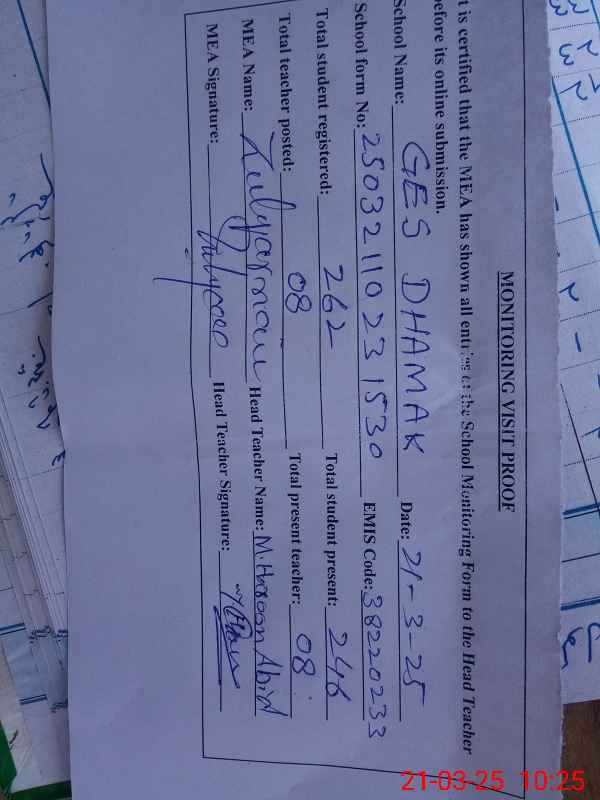 MONITORING VISIT PROOF
t is certified that the MEA has shown all entries of the School Monitoring Form to the Head Teacher
before its online submission.
School Name: GES DHAMAK Date: 21-3-25
School form No: 25032110231530 EMIS Code: 38220233
Total student registered: 262 Total student present: 246
Total teacher posted: 08 Total present teacher: 08
MEA Name: Head Teacher Name: M. Haroon Abid
MEA Signature: Head Teacher Signature:
21-03-25 10:25